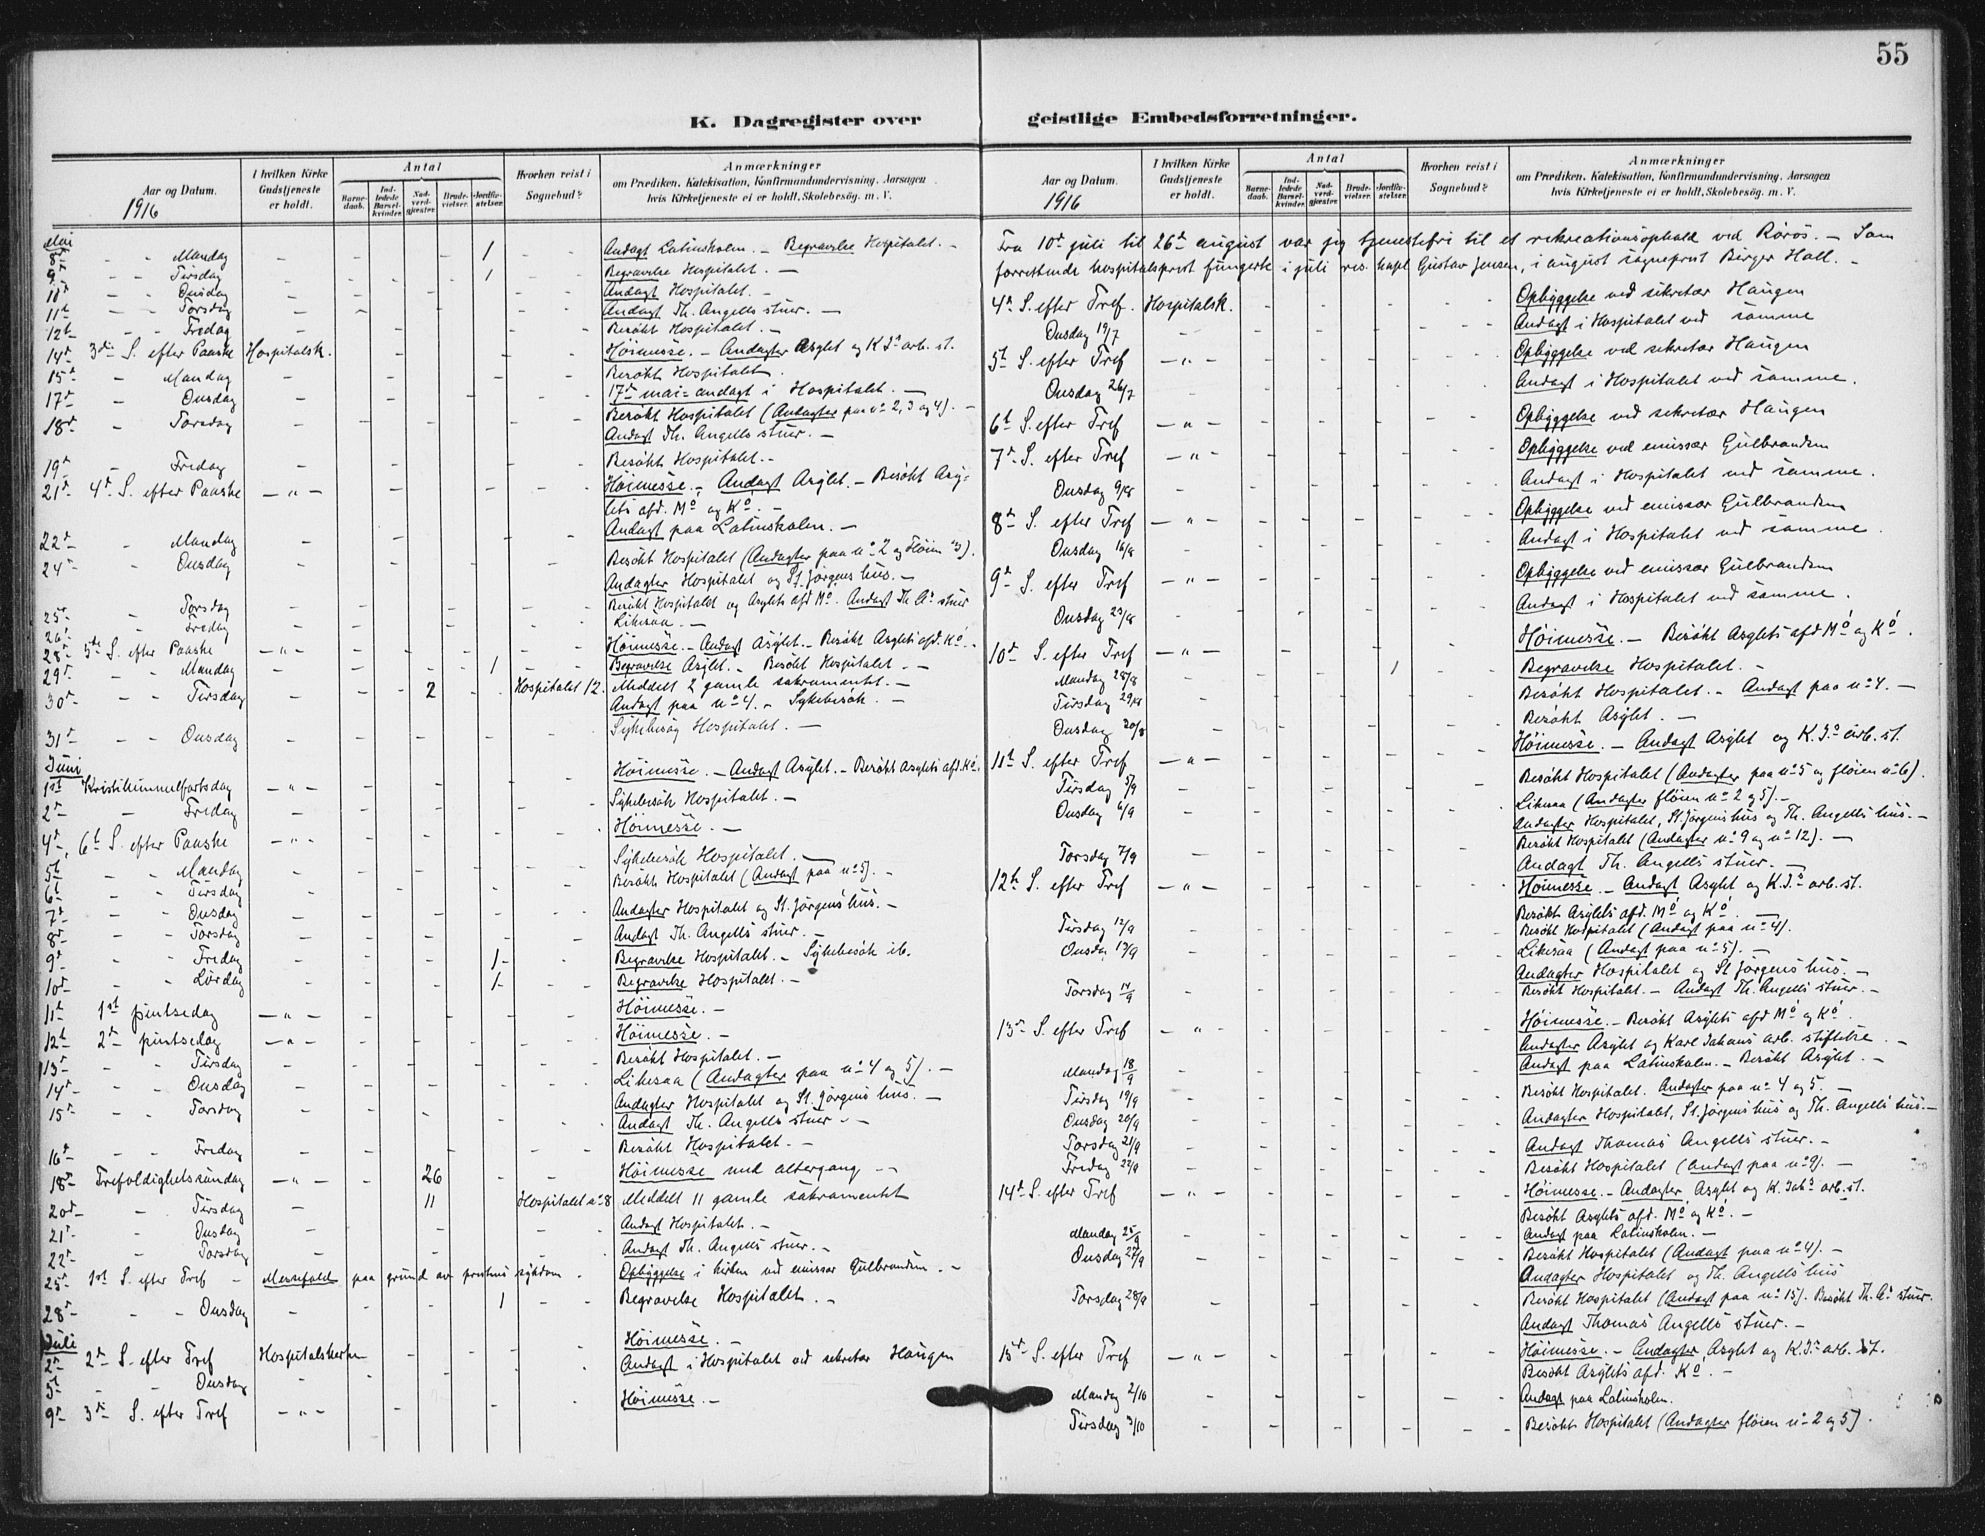 55
K. Dagregister over geistlige Embedsforretninger.
Aar og Datum.
1916
I hvilken Kirke Gudstjeneste er holdt.
Antal
Barnedaab.
Indledede Barselkvinder.
Nadverdgjester.
Brudevielser.
Jordfæstelser.
Hvorhen reist i Sognebud?
Anmærkninger
om Prædiken, Katekisation, Konfirmandundervisning, Aarsagen
hvis Kirketjeneste ei er holdt, Skolebesøg. m. V.
Mai
8de - - Mandag - - - - 1 - - Andagt Latinskolen. - Begravelse Hospitalet. -
9de - - Tirsdag - - - - 1 - - Begravelse Hospitalet. -
10de - - Onsdag Andagt Hospitalet. -
11te - - Torsdag Andagt Th. Angells stuer. -
12te - - Fredag Besøkt Hospitalet. -
14de 3die S. efter Paaske Hospitalsk. Høimesse. - Andagter Asylet og K.J.s arb. st.
15de - Mandag Besøkt Hospitalet.
17de - Onsdag 17de mai-andagt i Hospitalet. -
18de - Torsdag Besøkt Hospitalet (Andagter paa no 2, 3 og 4). -
Andagt Th. Angells stuer. -
19de - Fredag Besøkt Hospitalet. -
21de 4de S. efter Paaske - " - Høimesse. - Andagt Asylet. - Besøkt Asy-
lets afd. Mo og Ko. -
22de - Mandag Andagt paa Latinskolen. -
24de - Onsdag Besøkt Hospitalet (Andagter paa no 2 og Fløien 3).
Andagter Hospitalet og St. Jørgens hus. -
25de - Torsdag Besøkt Hospitalet og Asylets afd Mo. Andagt Th. A.s stuer
26de - Fredag Likesaa. -
28de 5te S. efter Paaske - " - Høimesse. - Andagt Asylet. - Besøkt Asylets afd. Ko. -
29de - - Mandag 1 Begravelse Asylet. - Besøkt Hospitalet. -
30de - - Tirsdag 2 Hospitalet 12. Meddelt 2 gamle sakramentet. -
Andagt paa no 4. - Sykebesøk. -
31te - - Onsdag Sykebesøg Hospitalet. -
Juni
1ste Kristihimmelfartsdag - " - Høimesse. - Andagt Asylet. - Besøkt Asylets afd. Ko.
2de - Fredag Sykebesøk Hospitalet. -
4de 6te S. efter Paaske - " - Høimesse. -
5te - - Mandag Sykebesøk Hospitalet. -
6te - - Tirsdag Besøkt Hospitalet (Andagt paa no 5). -
7de - - Onsdag Andagter Hospitalet og St. Jørgens hus. -
8de - - Torsdag Andagt Th. Angells stuer. -
9de - - Fredag 1 Begravelse Hospitalet. - Sykebesøk ib.
10de - - Lørdag 1 Begravelse Hospitalet. -
11te 1ste pintsedag - " - Høimesse. -
12te 2den pintsedag - " - Høimesse. -
13de - - Tirsdag Besøkt Hospitalet. -
14de - - Onsdag Likesaa (Andagter paa no 4 og 5). -
Andagter Hospitalet og St. Jørgens hus. -
15de - - Torsdag Andagt Th. Angells stuer. -
16de - - Fredag Besøkt Hospitalet. -
18de Trefoldighetssøndag - " - 26 Høimesse med altergang -
20de - Tirsdag 11 Hospitalet no 8 Meddelt 11 gamle sakramentet
21de - Onsdag Andagt Hospitalet. -
22de - Torsdag Andagt Th. Angells stuer. -
25de 1ste S. efter Tref - Messefald paa grund av prestens sykdom. Opbyggelse i kirken ved emissær Gulbrandsen. -
28de - - Onsdag 1 Begravelse Hospitalet. -
Juli
2de 2den S. efter Tref Hospitalskirken Høimesse. -
5te - - Onsdag Andagt i Hospitalet ved sekretær Haugen
9de 3die S. efter Tref - " - Høimesse. -
Aar og Datum.
1916
I hvilken Kirke Gudstjeneste er holdt.
Antal
Barnedaab.
Indledede Barselkvinder.
Nadverdgjester.
Brudevielser.
Jordfæstelser.
Hvorhen reist i Sognebud?
Anmærkninger
om Prædiken, Katekisation, Konfirmandundervisning, Aarsagen
hvis Kirketjeneste ei er holdt, Skolebesøg. m. V.
Fra 10de juli til 26de august var jeg tjenestefri til et rekreationsophold ved Røros. - Som
forrettende hospitalsprest fungerte i juli res. kapl Gustav Jensen, i august sogneprest Berger Hall. -
4de S. efter Tref. Hospitalsk. Opbyggelse ved sekretær Haugen
Onsdag 19/7 Andagt i Hospitalet ved samme
5te S. efter Tref - " - Opbyggelse ved sekretær Haugen
Onsdag 26/7 Andagt i Hospitalet ved samme.
6te S. efter Tref - " - Opbyggelse ved sekretær Haugen
7de S. efter Tref - " - Opbyggelse ved emissær Gulbrandsen
Onsdag 9/8 Andagt i Hospitalet ved samme.
8de S. efter Tref - " - Opbyggelse ved emissær Gulbrandsen
Onsdag 16/8 Andagt i Hospitalet ved samme.
9de S. efter Tref - " - Opbyggelse ved emissær Gulbrandsen
Onsdag 23/8 Andagt i Hospitalet ved samme.
10de S. efter Tref - " - Høimesse. - Besøkt Asylets afd Mo og Ko.
Mandag 28/8 1 Begravelse Hospitalet. -
Tirsdag 29/8 Besøkt Hospitalet. - Andagt paa no 4. -
Onsdag 30/8 Besøkt Asylet. -
11te S. efter Tref - " - Høimesse. - Andagt Asylet og K.J.s arb. st.
Tirsdag 5/9 Besøkt Hospitalet (Andagter paa no 5 og fløien no 6).
Onsdag 6/9 Likesaa (Andagter fløien no 2 og 5). -
Andagter Hospitalet, St. Jørgens hus og Th. Angells hus. -
Torsdag 7/9 Besøkt Hospitalet (Andagter no 9 og no 12). -
Andagt Th. Angells stuer. -
12te S. efter Tref - " - Høimesse. - Andagt Asylet og K.J.s arb. st.
Besøkt Asylets afd. Mo og Ko. -
Tirsdag 12/9 Besøkt Hospitalet (Andagt paa no 4).
Onsdag 13/9 Likesaa (Andagt paa no 5). -
Andagter Hospitalet og St Jørgens hus. -
Torsdag 14/9 Besøkt Hospitalet. - Andagt Th. Angells stuer. -
13de S. efter Tref - " - Høimesse. - Besøkt Asylets afd Mo og Ko.
Andagter Asylet og Karl Johans arb. stiftelse. -
Mandag 18/9 Andagt paa Latinskolen. - Besøkt Asylet. -
Tirsdag 19/9 Besøkt Hospitalet. Andagter paa no 4 og 5. -
Onsdag 20/9 Andagter Hospitalet, St. Jørgens hus og Th. Angells hus. -
Torsdag 21/9 Andagt Thomas Angells stuer. -
Fredag 22/9 Besøkt Hospitalet (Andagt paa no 9). -
14de S. efter Tref - " - Høimesse. - Andagter Asylet og K. Joh.s arb. st.
Besøkt Asylets afd. Mo og Ko. -
Mandag 25/9 Andagt paa Latinskolen. -
Onsdag 27/9 Besøkt Hospitalet (Andagt paa no 4). -
Andagter Hospitalet og Th. Angells hus
Torsdag 28/9 Besøkt Hospitalet (Andagt paa no 15). Besøkt Th. A.s stuer.
Andagt Thomas Angells stuer. -
15de S. efter Tref - " - Høimesse. - Andagter Asylet og K.J.s arb. st.
Besøkt Asylets afd. Ko. -
Mandag 2/10 Andagt paa Latinskolen.
Tirsdag 3/10 Besøkt Hospitalet (Andagter fløien no 2 og 5).